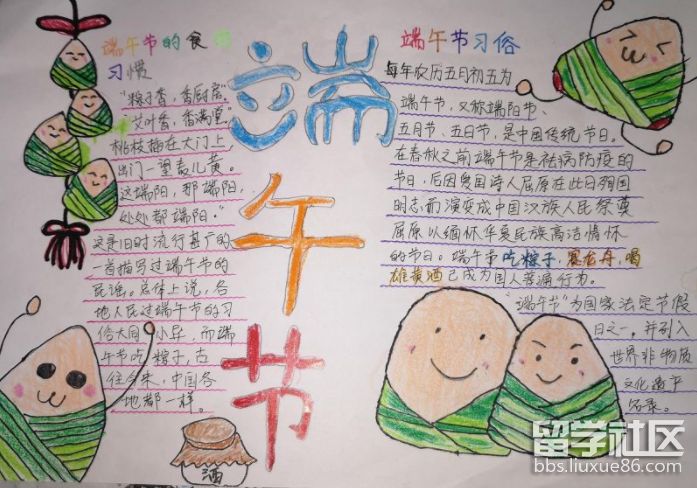 端午节的食
习惯
"粽子香,香厨房。
艾叶香,香满堂。
桃枝插在大门上,
出门一望麦儿黄。
这端阳,那端阳,
处处都端阳。"
这是旧时流行甚广的
一首描写过端午节的
民谣。总体上说,各
地人民过端午节的习
俗大同小异,而端
午节吃粽子,古
往今来,中国各
地都一样。
端午节
酒
端午节习俗
每年农历五月初五为
端午节,又称端阳节、
五月节、五日节,是中国传统节日,
在春秋之前端午节是祛病防疫的
节日,后因爱国诗人屈原在此日殉国
明志而演变成中国汉族人民祭奠
屈原以缅怀华夏民族高洁情怀
的节日。端午节吃粽子,赛龙舟,喝
雄黄酒已成为国人普通行为。
"端午节"为国家法定节假
日之一,并列入
世界非物质
文化遗产
名录。
留学社区
bbs.liuxue86.com